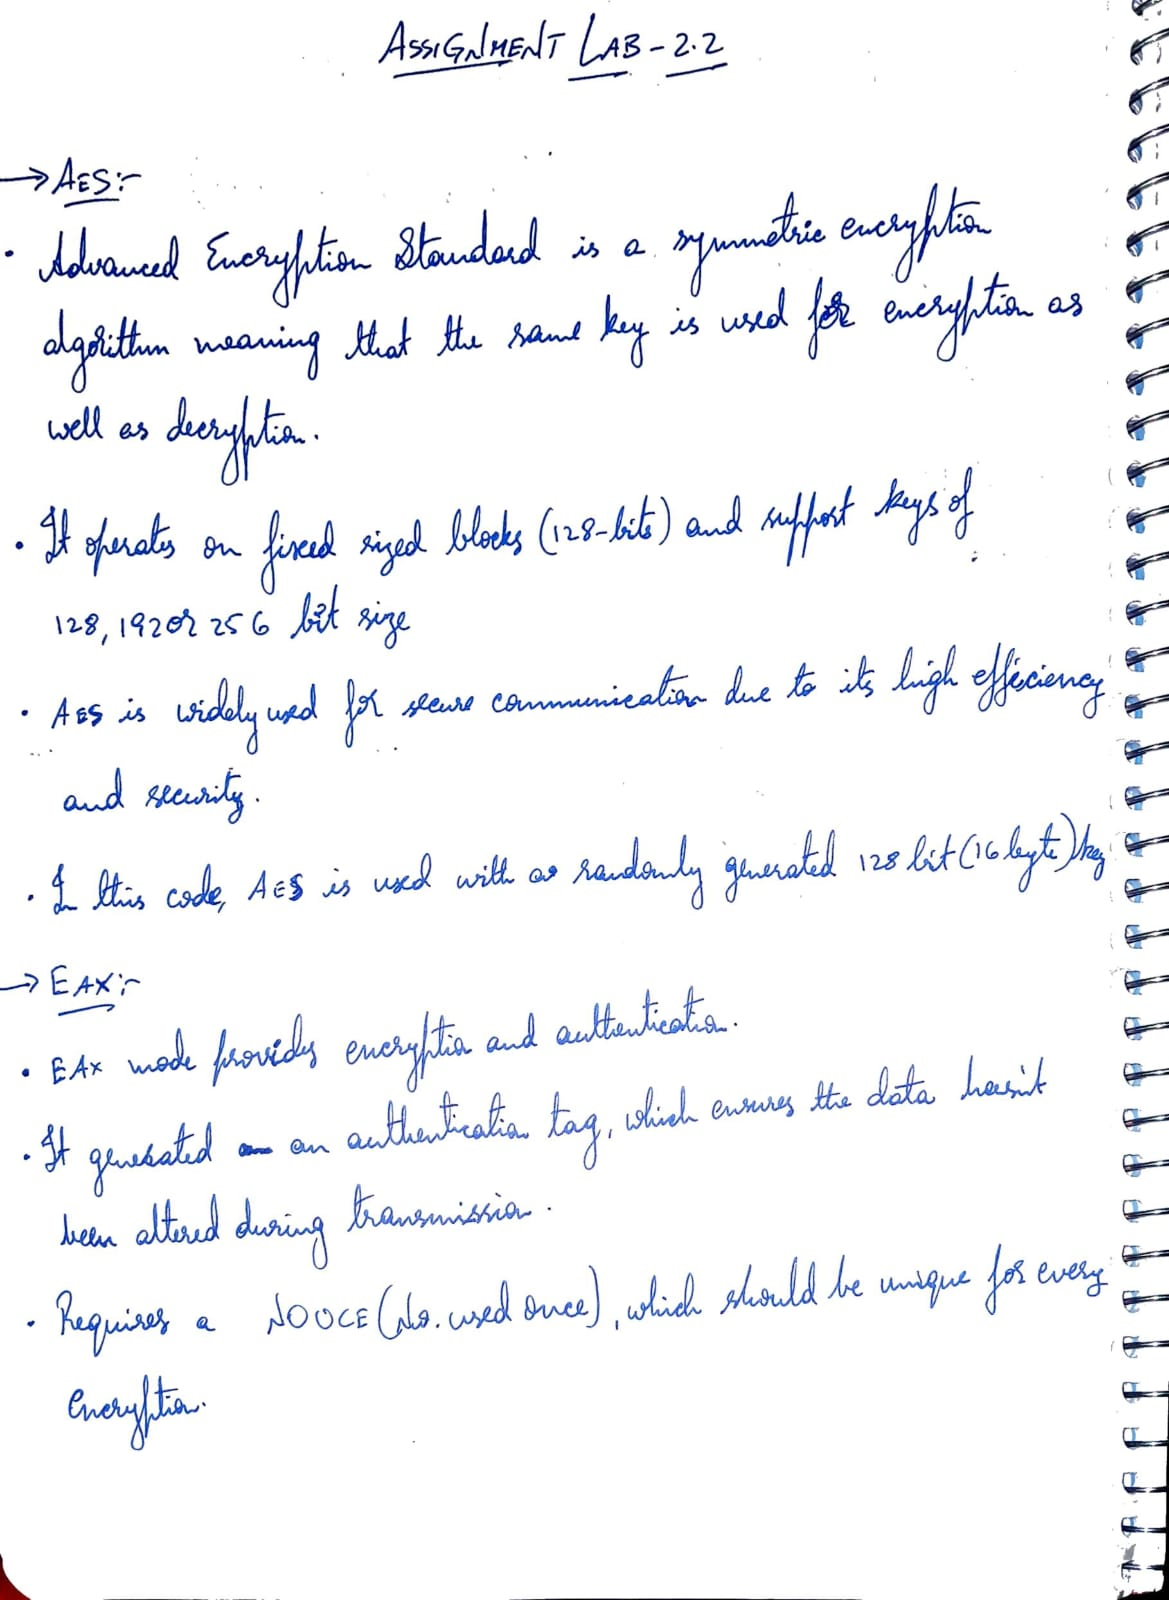 ASSIGNMENT LAB - 2.2
→ AES:-
· Advanced Encryption Standard is a symmetric encryption
algorithm meaning that the same key is used for encryption as
well as decryption.
· It operates on fixed sized blocks (128-bits) and support keys of
128, 192 or 256 bit size
· AES is widely used for secure communication due to its high efficiency
and security.
· In this code, AES is used with a randomly generated 128 bit (16 byte) key
→ EAX:-
· EAX mode provides encryption and authentication.
· It generated an authentication tag, which ensures the data hasn't
been altered during transmission.
· Requires a NOUCE (No. used once), which should be unique for every
encryption.